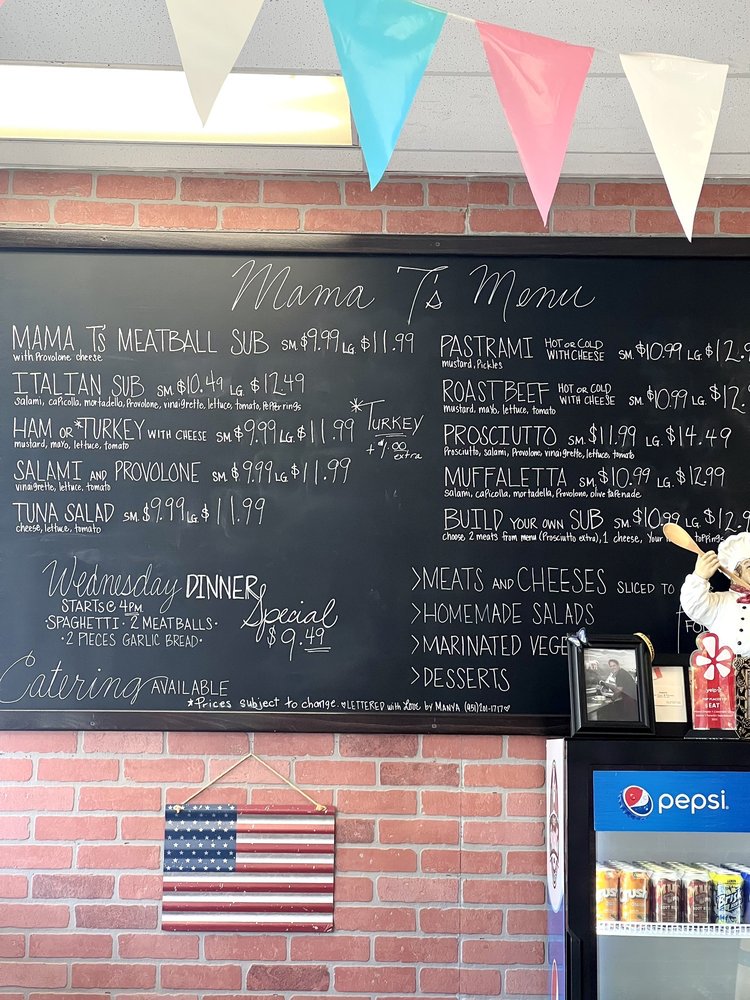 Mama T's Menu
MAMA T's MEATBALL SUB SM. $9.99 LG. $11.99
with Provolone cheese
ITALIAN SUB SM. $10.49 LG. $12.49
salami, capicolla, mortadella, Provolone, vinaigrette, lettuce, tomato, Pepper rings
HAM OR *TURKEY WITH CHEESE SM. $9.99 LG. $11.99
mustard, mayo, lettuce, tomato
*TURKEY
+ $1.00
extra
SALAMI AND PROVOLONE SM. $9.99 LG. $11.99
vinaigrette, lettuce, tomato
TUNA SALAD SM. $9.99 LG. $11.99
cheese, lettuce, tomato
PASTRAMI HOT OR COLD WITH CHEESE SM. $10.99 LG. $12.
mustard, Pickles
ROAST BEEF HOT OR COLD WITH CHEESE SM. $10.99 LG. $12.
mustard, mayo, lettuce, tomato
PROSCIUTTO SM. $11.99 LG. $14.49
Prosciutto, salami, Provolone, vinaigrette, lettuce, tomato
MUFFALETTA SM. $10.99 LG. $12.99
salami, capicolla, mortadella, Provolone, olive tapenade
BUILD YOUR OWN SUB SM. $10.99 LG. $12.
choose 2 meats from menu (Prosciutto extra), 1 cheese, Your toppings
Wednesday DINNER
Special
STARTS @ 4PM
SPAGHETTI · 2 MEATBALLS ·
· 2 PIECES GARLIC BREAD ·
$9.49
>MEATS AND CHEESES SLICED TO
>HOMEMADE SALADS
>MARINATED VEGE
>DESSERTS
Catering AVAILABLE
*Prices subject to change. ♥LETTERED with Love by MANYA (951) 201-1717♥
yelp
EAT
pepsi